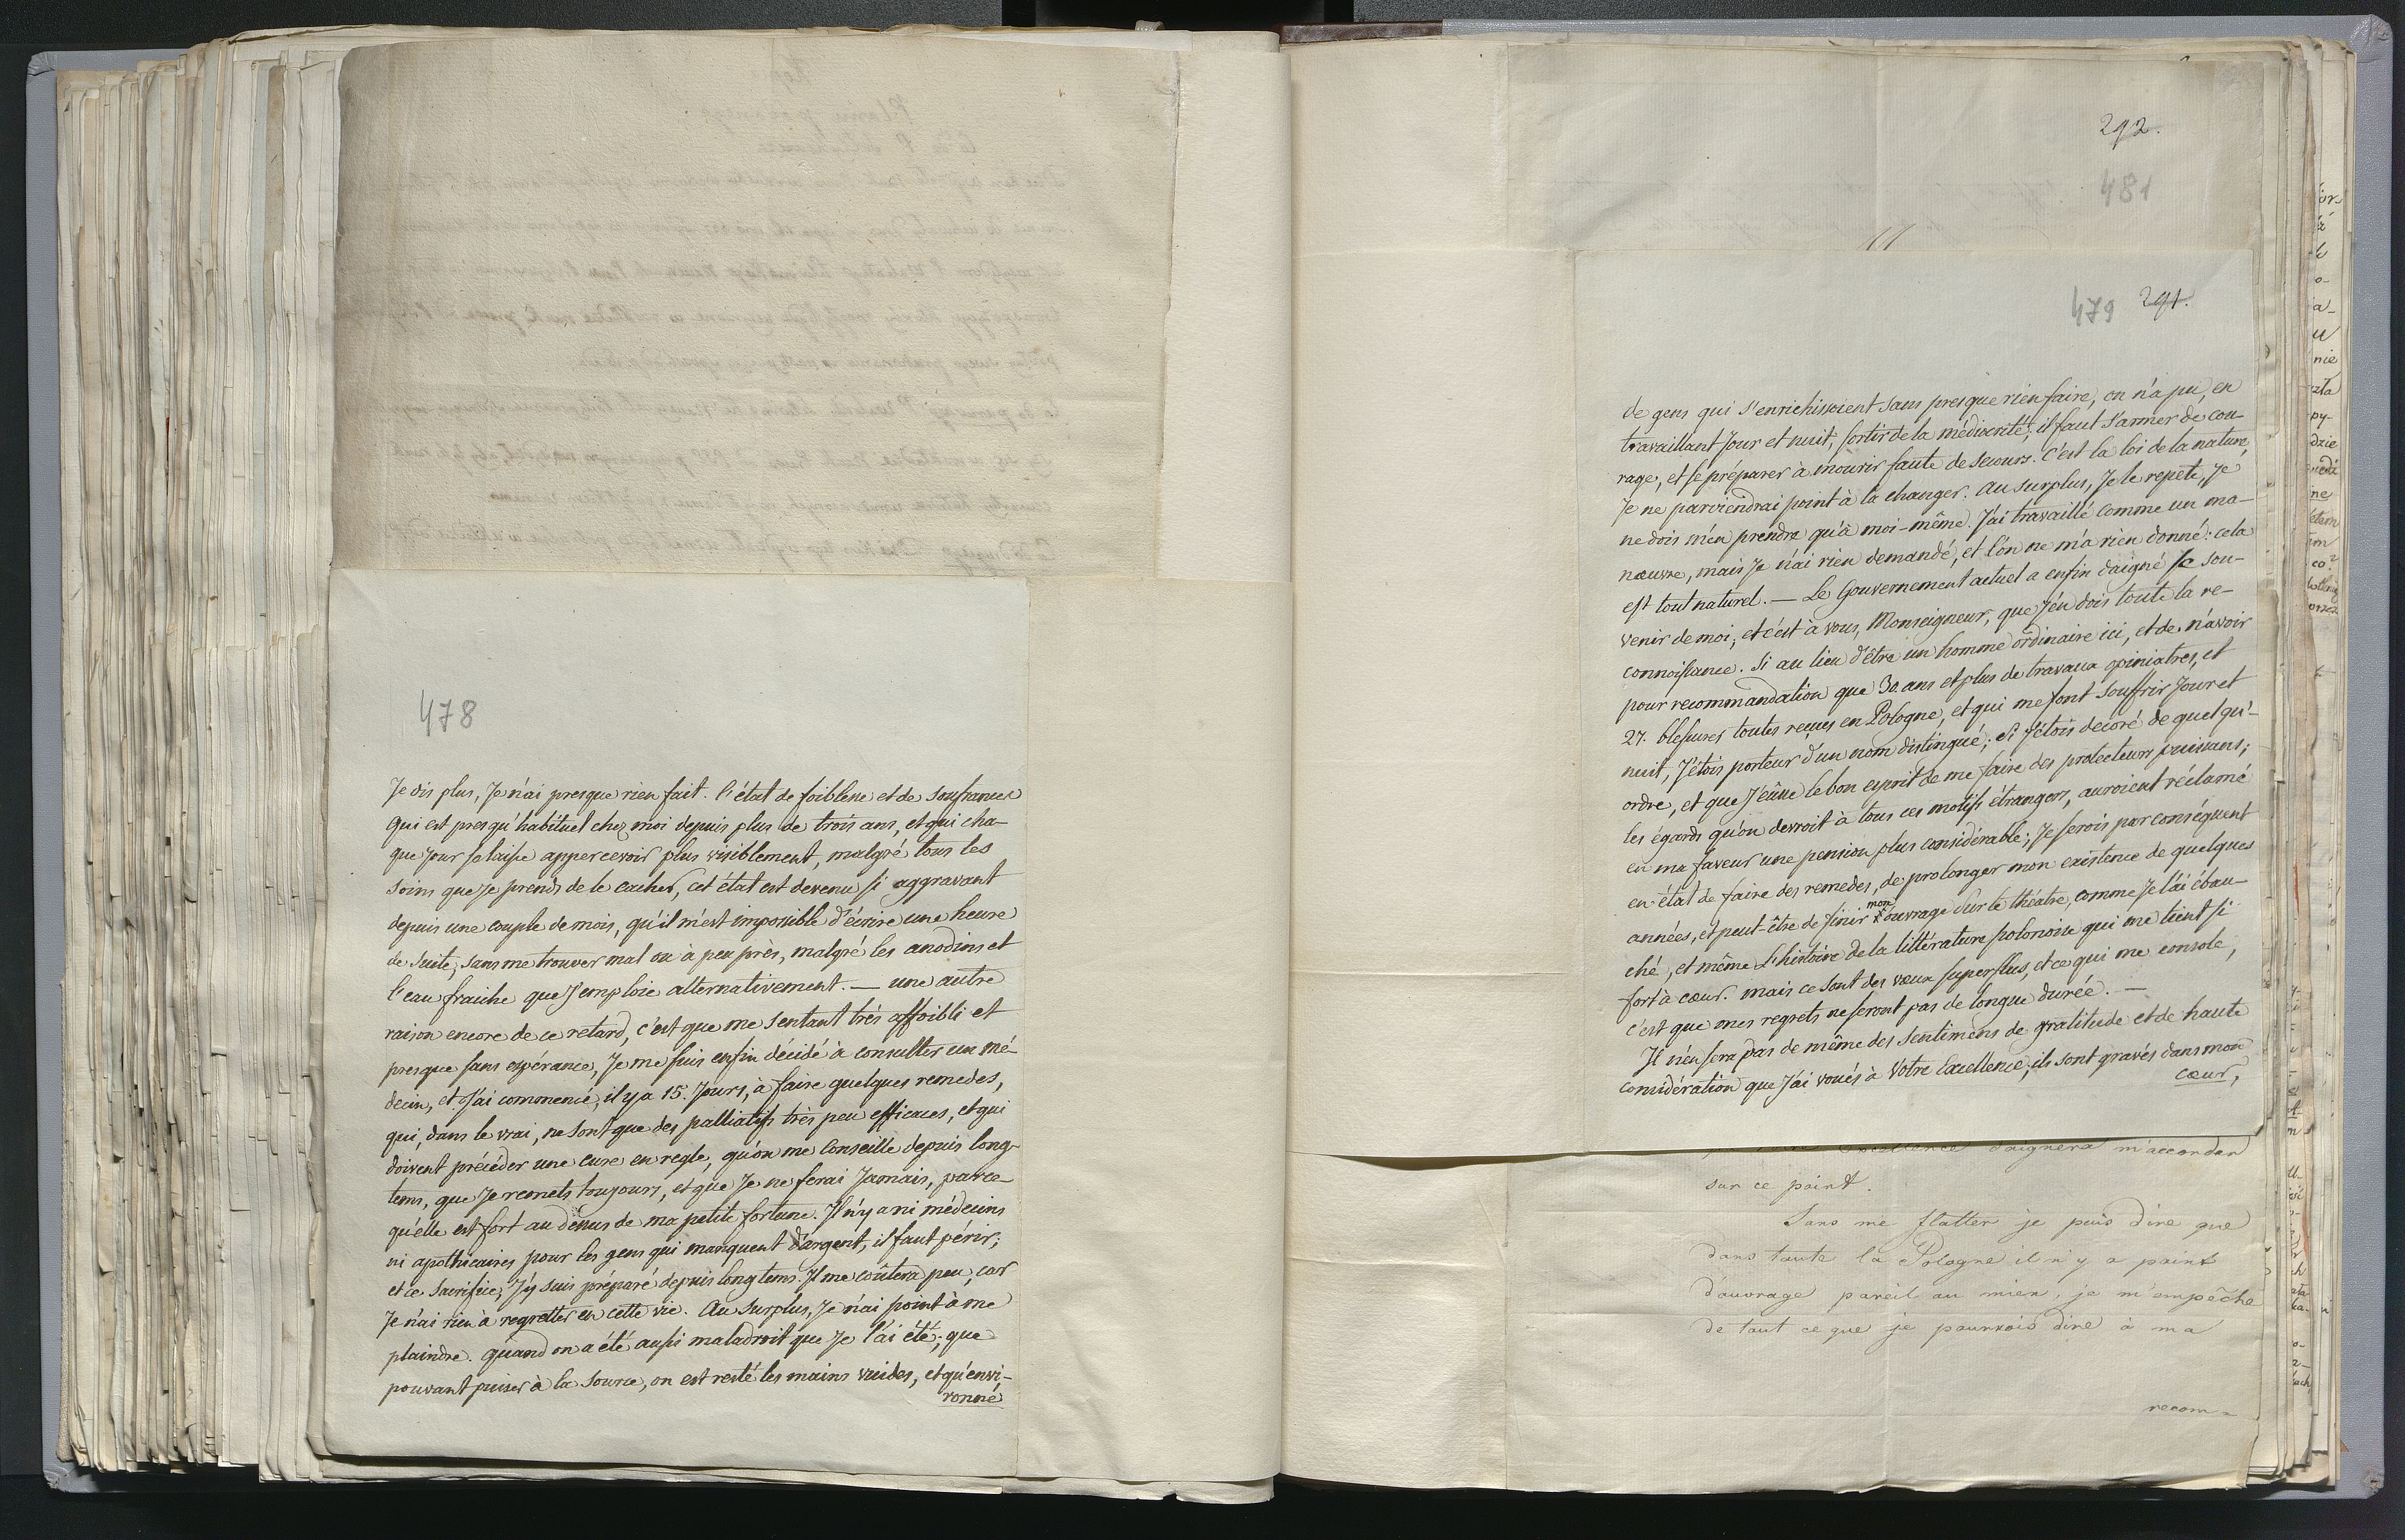 478
Je dis plus, Je n'ai presque rien fait. l'état de foiblesse et de soufrances
qui est presqu'habituel chez moi depuis plus de trois ans, et qui cha-
que jour se laisse appercevoir plus visiblement, malgré tous les
soins que je prends de le cacher, cet état est devenu si aggravant
depuis une couple de mois, qu'il m'est impossible d'écrire une heure
de suite, sans me trouver mal ou à peu près, malgré les anodins et
l'eau fraiche que J'emploie alternativement. — une autre
raison encore de ce retard, c'est que me sentant très affoibli et
presque sans espérance, Je me suis enfin décidé à consulter un mé-
decin, et J'ai commencé, il y a 15. Jours, à faire quelques remedes,
qui, dans le vrai, ne sont que des palliatifs très peu efficaces, et qui
doivent précéder une cure en regle, qu'on me conseille depuis long-
tems, que Je remets toujours, et que Je ne ferai Jamais, parce-
qu'elle est fort au dessus de ma petite fortune. Il n'y a ni médecins
ni apothicaires pour les gens qui manquent d'argent, il faut périr;
et ce sacrifice, J'y suis préparé depuis long tems. Il me coûtera peu, car
Je n'ai rien à regretter en cette vie. Au surplus, Je n'ai point à me
plaindre. quand on a été aussi maladroit que Je l'ai été; que
pouvant puiser à la source, on est resté les mains vuides, et qu'envi-
ronné
292.
481
479 291.
de gens qui s'enrichissoient sans presque rien faire, on n'a pu, en
travaillant Jour et nuit, sortir de la médiocrité; il faut s'armer de cou-
rage, et se préparer à mourir faute de secours. C'est la loi de la nature,
Je ne parviendrai point à la changer. Au surplus, Je le repete, Je
ne dois m'en prendre qu'à moi-même. J'ai travaillé comme un ma-
nœuvre, mais Je n'ai rien demandé, et l'on ne m'a rien donné: cela
est tout naturel. — Le Gouvernement actuel a enfin daigné se sou-
venir de moi; et c'est à vous, Monseigneur, que J'en dois toute la re-
connoissance. Si au lieu d'être un homme ordinaire ici, et de n'avoir
pour recommandation que 30. ans et plus de travaux opiniatres, et
27. blessures toutes reçues en Pologne, et qui me font souffrir Jour et
nuit, J'étois porteur d'un nom distingué; si J'étois decoré de quelqu'-
ordre, et que J'eusse le bon esprit de me faire des protecteurs puissans;
les égards qu'on devroit à tous ces motifs étrangers, auroient réclamé
en ma faveur une pension plus considérable; Je serois par conséquent
en état de faire des remedes, de prolonger mon existence de quelques
années, et peut-être de finir mon ouvrage sur le théatre, comme Je l'ai ébau-
ché, et même l'histoire de la littérature polonoise qui me tient si
fort à cœur. mais ce sont des vœux superflus, et ce qui me console,
c'est que mes regrets ne seront pas de longue durée. —
Il n'en sera pas de même des sentimens de gratitude et de haute
considération que J'ai voués à Votre Excellence; ils sont gravés dans mon
cœur,
daignera m'accorder
sur ce point.
Sans me flatter je puis dire que
dans toute la Pologne il n'y a point
d'ouvrage pareil au mien, je m'empêche
de tout ce que je pourrois dire à ma
recom-